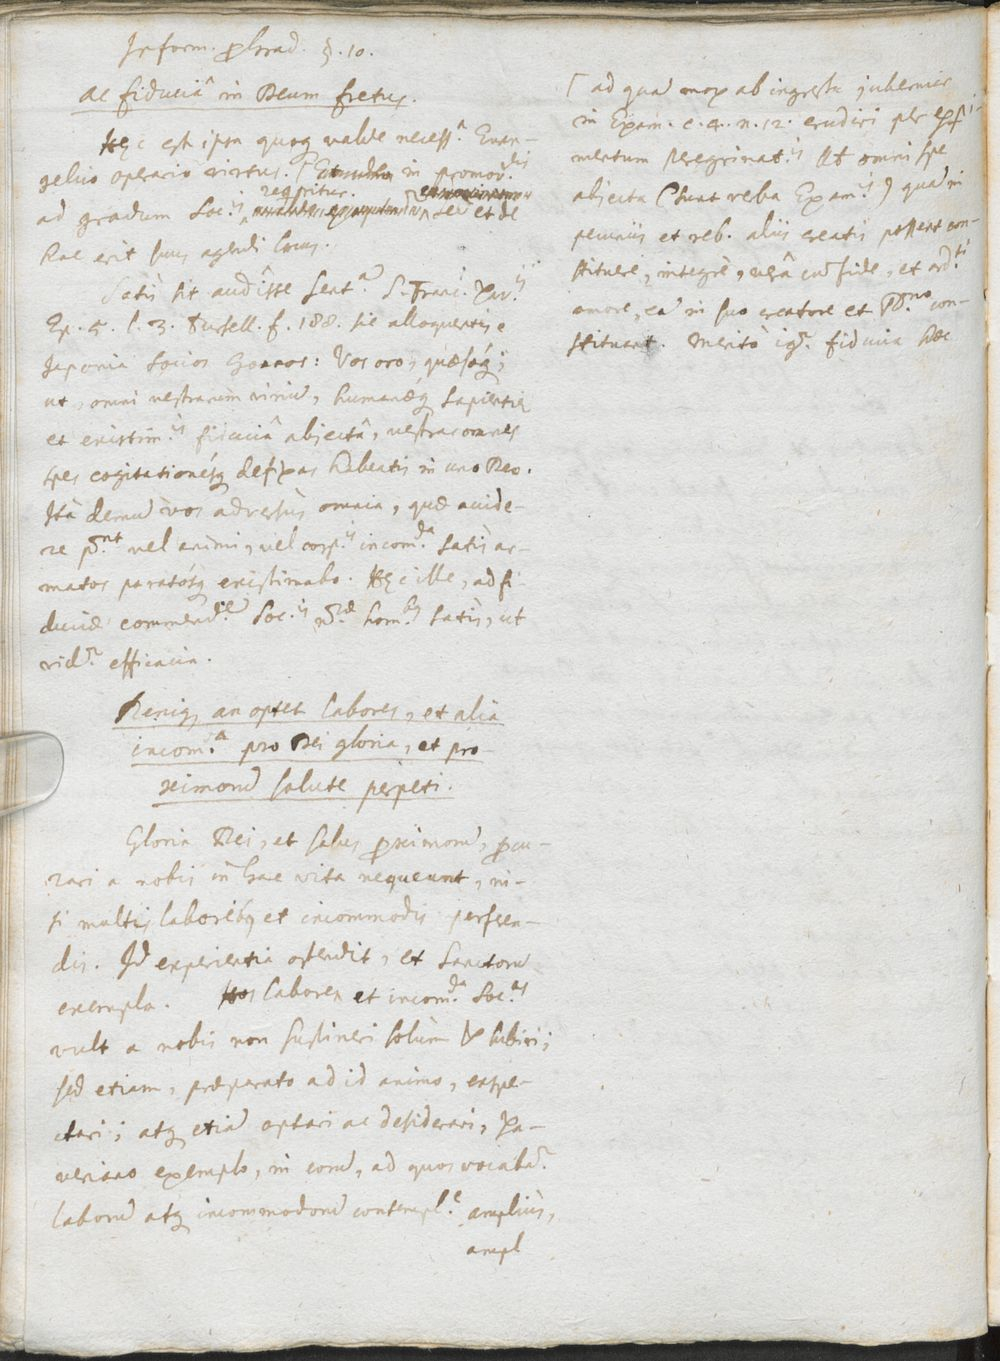 Inform. p Grad. §. 10.
ac fiduciâ in Deum fretus.
Hęc est ipsa quoq valde necess.ᵃ Evan-
gelico operario virtus. in promov.ᵈⁱˢ
ad gradum Soc.ⁱˢ reqritur. seu et de
hac erit suus agendi locus.
Satis sit audîsse sent.ᵃ S. Franc.ⁱ Xav.ⁱⁱ
Ep. 5. l. 3. Tursell. f. 188. sic alloquentis e
Japonia Socios Goanos: Vos oro, quæsóq;
ut, omni vestrarum viriū, humanæq sapientię
et existim.ⁱˢ fiduciâ abjectâ, vestras omnes
spes cogitationésq defixas habeatis in uno Deo.
Ità demū vos adversùs omnia, quæ accide-
re p̄ⁿᵗ vel animi, vel corp.ⁱˢ incom.ᵈᵃ satis ar-
matos paratósq existimabo. Hęc ille, ad fi-
duciæ commend.ᵉᵐ Soc.ⁱˢ n̄ræ hom.ᵇꝰ satis, ut
vid.ʳ efficacia.
Deniq, an optet labores, et alia
incom.ᵃ pro Dei gloria, et pro-
ximorū salute perpeti.
Gloria Dei, et salus pximorū, pcu-
rari a nobis in hac vita nequeunt, ni-
si multis laboribꝰ et incommodis perferen-
dis. Id experientia ostendit, et Sanctorū
exempla. Hos labores et incom.ᵈᵃ Soc.ᵃˢ
vult a nobis non sustineri solùm & subiri;
sed etiam, præparato ad id animo, expe-
ctari; atq etiā optari ac desiderari, Xa-
veriano exemplo, in eorū, ad quos vocabat.ʳ
laborū atq incommodorū contempl.ᵉ ampliùs,
ampl
[ad quā mox ab ingressu jubemur
in Exam. c. 4. n. 12. erudiri per expi-
mentum peregrinat.ⁱˢ Ut omni spe
abjecta (sunt verba Exam.ⁱˢ) quā in
pecuniis et reb. aliis creatis possent con-
stituere, integrè, verâ cū fide, et ard.ᵗⁱ
amore, eā in suo creatore et D̄ⁿᵒ con-
stituant. Meritò ig.ʳ fiducia hæc